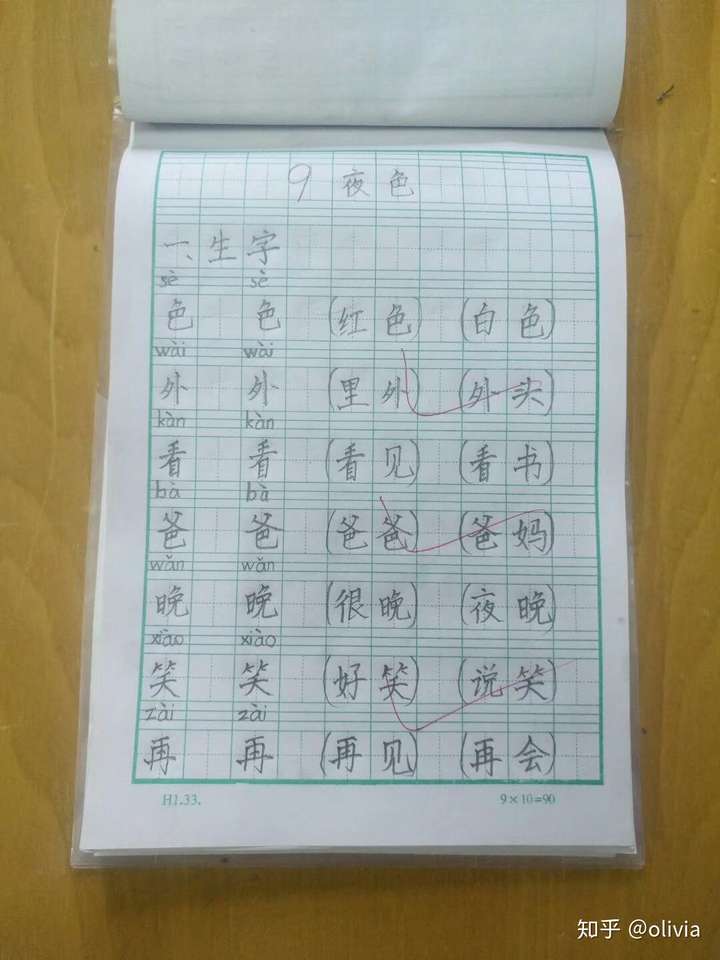 9 夜色
一、生字
sè sè
色 色 (红色) (白色)
wài wài
外 外 (里外) (外头)
kàn kàn
看 看 (看见) (看书)
bà bà
爸 爸 (爸爸) (爸妈)
wǎn wǎn
晚 晚 (很晚) (夜晚)
xiào xiào
笑 笑 (好笑) (说笑)
zài zài
再 再 (再见) (再会)
H1.33. 9×10=90
知乎 @olivia